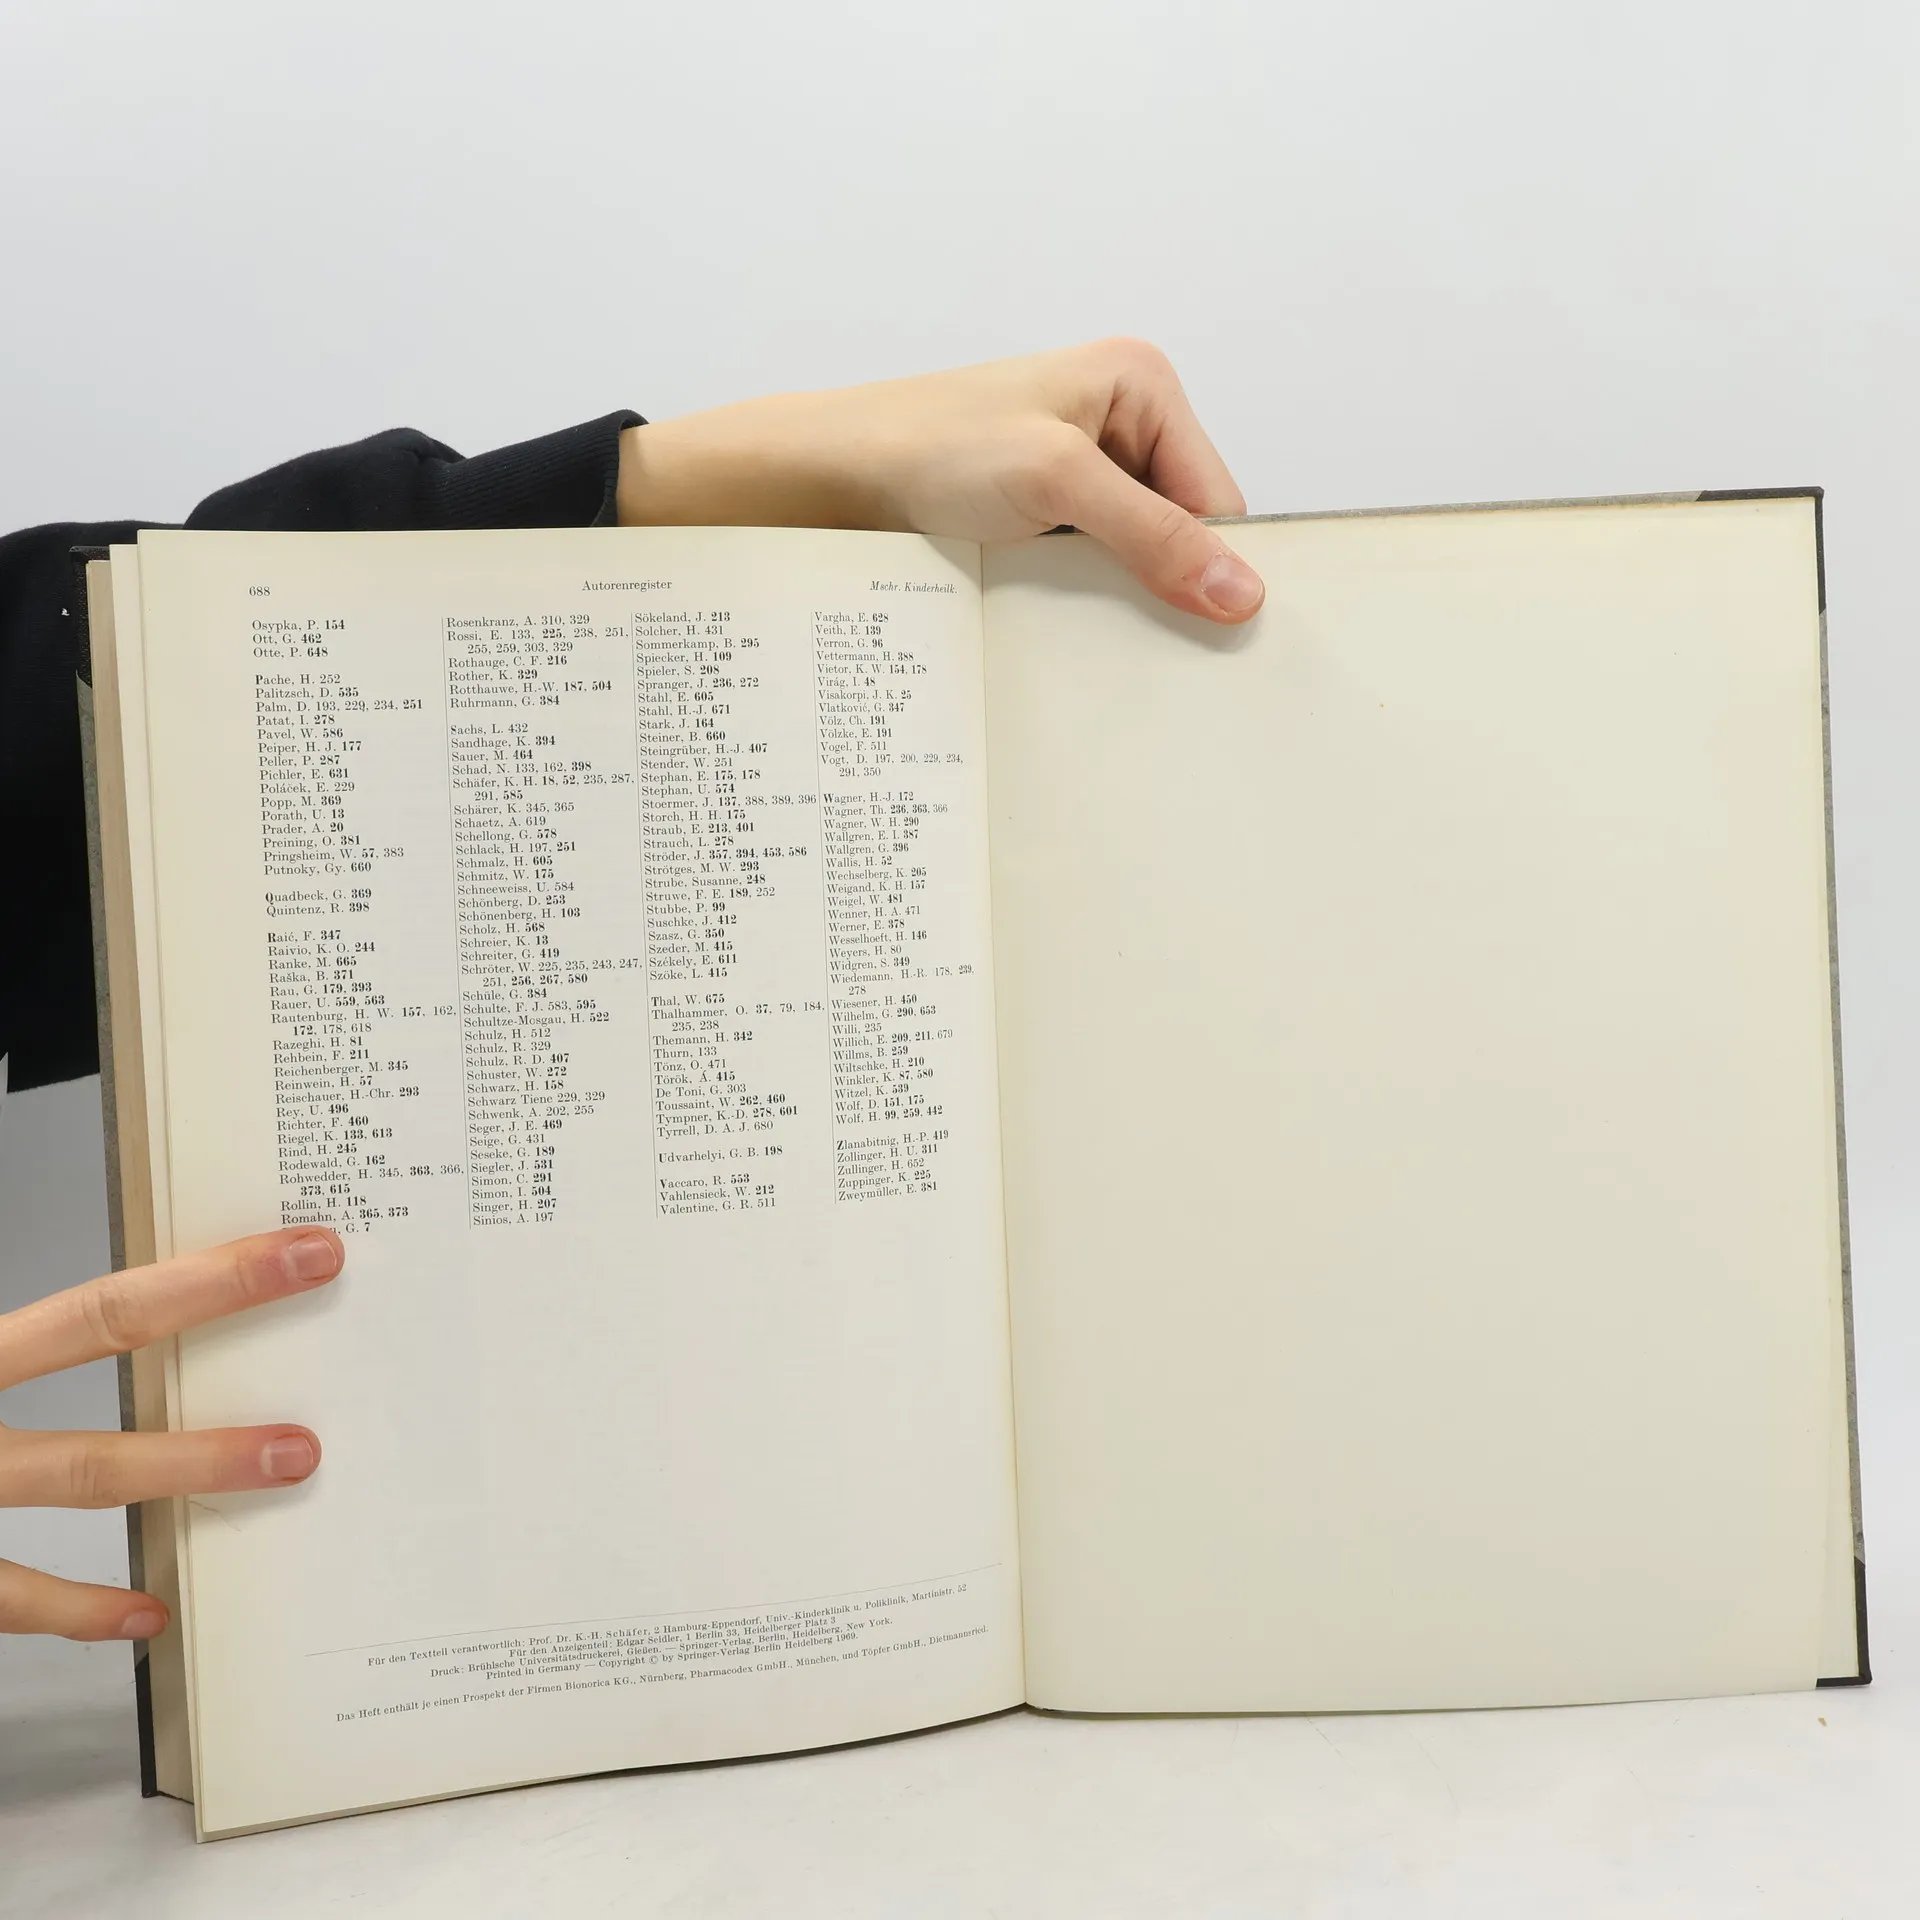 688
Autorenregister
Mschr. Kinderheilk.
Osypka, P. 154
Ott, G. 462
Otte, P. 648
Pache, H. 252
Palitzsch, D. 535
Palm, D. 193, 229, 234, 251
Patat, I. 278
Pavel, W. 586
Peiper, H. J. 177
Peller, P. 287
Pichler, E. 631
Poláček, E. 229
Popp, M. 369
Porath, U. 13
Prader, A. 20
Preining, O. 381
Pringsheim, W. 57, 383
Putnoky, Gy. 660
Quadbeck, G. 369
Quintenz, R. 398
Raić, F. 347
Raivio, K. O. 244
Ranke, M. 665
Raška, B. 371
Rau, G. 179, 393
Rauer, U. 559, 563
Rautenburg, H. W. 157, 162,
172, 178, 618
Razeghi, H. 81
Rehbein, F. 211
Reichenberger, M. 345
Reinwein, H. 57
Reischauer, H.-Chr. 293
Rey, U. 496
Richter, F. 460
Riegel, K. 133, 613
Rind, H. 245
Rodewald, G. 162
Rohwedder, H. 345, 363, 366,
373, 615
Rollin, H. 118
Romahn, A. 365, 373
G. 7
Rosenkranz, A. 310, 329
Rossi, E. 133, 225, 238, 251,
255, 259, 303, 329
Rothauge, C. F. 216
Rother, K. 329
Rotthauwe, H.-W. 187, 504
Ruhrmann, G. 384
Sachs, L. 432
Sandhage, K. 394
Sauer, M. 464
Schad, N. 133, 162, 398
Schäfer, K. H. 18, 52, 235, 287,
291, 585
Schärer, K. 345, 365
Schaetz, A. 619
Schellong, G. 578
Schlack, H. 197, 251
Schmalz, H. 605
Schmitz, W. 175
Schneeweiss, U. 584
Schönberg, D. 253
Schönenberg, H. 103
Scholz, H. 568
Schreier, K. 13
Schreiter, G. 419
Schröter, W. 225, 235, 243, 247,
251, 256, 267, 580
Schüle, G. 384
Schulte, F. J. 583, 595
Schultze-Mosgau, H. 522
Schulz, H. 512
Schulz, R. 329
Schulz, R. D. 407
Schuster, W. 272
Schwarz, H. 158
Schwarz Tiene 229, 329
Schwenk, A. 202, 255
Seger, J. E. 469
Seige, G. 431
Seseke, G. 189
Siegler, J. 531
Simon, C. 291
Simon, I. 504
Singer, H. 207
Sinios, A. 197
Sökeland, J. 213
Solcher, H. 431
Sommerkamp, B. 295
Spiecker, H. 109
Spieler, S. 208
Spranger, J. 236, 272
Stahl, E. 605
Stahl, H.-J. 671
Stark, J. 164
Steiner, B. 660
Steingrüber, H.-J. 407
Stender, W. 251
Stephan, E. 175, 178
Stephan, U. 574
Stoermer, J. 137, 388, 389, 396
Storch, H. H. 175
Straub, E. 213, 401
Strauch, L. 278
Ströder, J. 357, 394, 453, 586
Strötges, M. W. 293
Strube, Susanne, 248
Struwe, F. E. 189, 252
Stubbe, P. 99
Suschke, J. 412
Szasz, G. 350
Szeder, M. 415
Székely, E. 611
Szöke, L. 415
Thal, W. 675
Thalhammer, O. 37, 79, 184,
235, 238
Themann, H. 342
Thurn, 133
Tönz, O. 471
Török, Á. 415
De Toni, G. 303
Toussaint, W. 262, 460
Tympner, K.-D. 278, 601
Tyrrell, D. A. J. 680
Udvarhelyi, G. B. 198
Vaccaro, R. 553
Vahlensieck, W. 212
Valentine, G. R. 511
Vargha, E. 628
Veith, E. 139
Verron, G. 96
Vettermann, H. 388
Vietor, K. W. 154, 178
Virág, I. 48
Visakorpi, J. K. 25
Vlatković, G. 347
Völz, Ch. 191
Völzke, E. 191
Vogel, F. 511
Vogt, D. 197, 200, 229, 234,
291, 350
Wagner, H.-J. 172
Wagner, Th. 236, 363, 366
Wagner, W. H. 290
Wallgren, E. I. 387
Wallgren, G. 396
Wallis, H. 52
Wechselberg, K. 205
Weigand, K. H. 157
Weigel, W. 481
Wenner, H. A. 471
Werner, E. 378
Wesselhoeft, H. 146
Weyers, H. 80
Widgren, S. 349
Wiedemann, H.-R. 178, 239,
278
Wiesener, H. 450
Wilhelm, G. 290, 653
Willi, 235
Willich, E. 209, 211, 679
Willms, B. 259
Wiltschke, H. 210
Winkler, K. 87, 580
Witzel, K. 539
Wolf, D. 151, 175
Wolf, H. 99, 259, 442
Zlanabitnig, H.-P. 419
Zollinger, H. U. 311
Zullinger, H. 652
Zuppinger, K. 225
Zweymüller, E. 381
Für den Textteil verantwortlich: Prof. Dr. K.-H. Schäfer, 2 Hamburg-Eppendorf, Univ.-Kinderklinik u. Poliklinik, Martinistr. 52
Für den Anzeigenteil: Edgar Seidler, 1 Berlin 33, Heidelberger Platz 3
Druck: Brühlsche Universitätsdruckerei, Gießen. — Springer-Verlag, Berlin, Heidelberg, New York.
Printed in Germany — Copyright © by Springer-Verlag Berlin Heidelberg 1969.
Das Heft enthält je einen Prospekt der Firmen Bionorica KG., Nürnberg, Pharmacodex GmbH., München, und Töpfer GmbH., Dietmannsried.